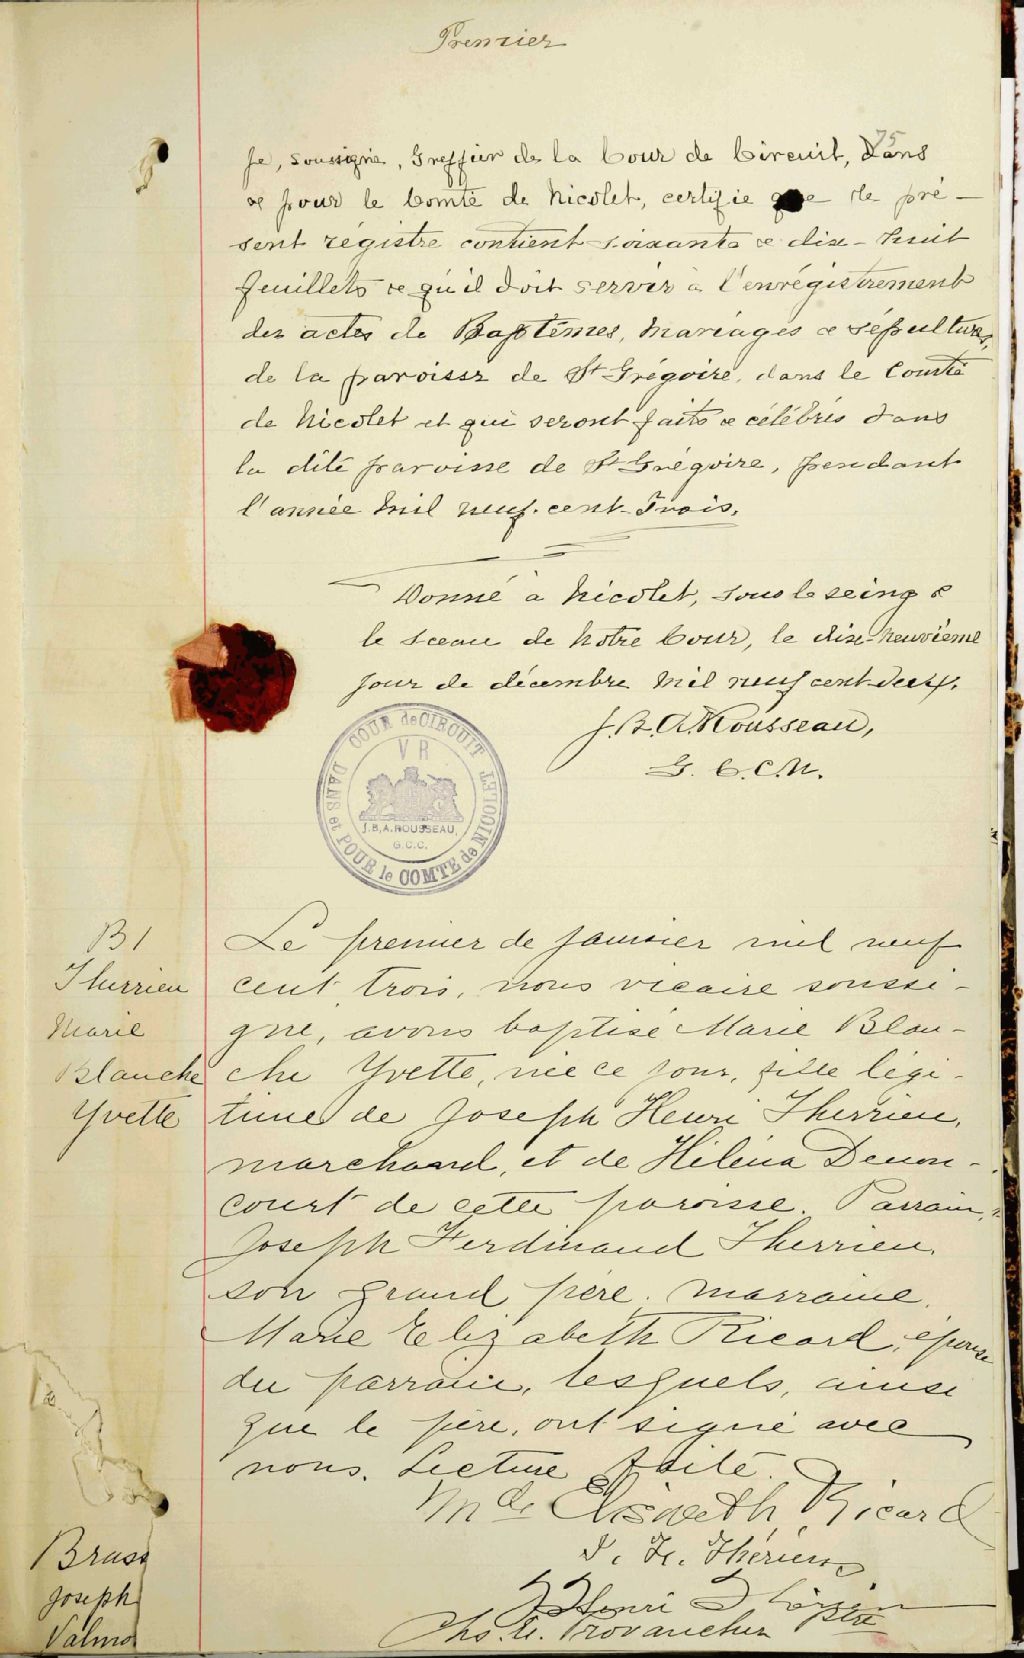 Premier
75
Je, soussigné, Greffier de la Cour de Circuit, dans
& pour le Comté de Nicolet, certifie que le pré-
sent régistre contient soixante & dix-huit
feuillets & qu'il doit servir à l'enrégistrement
des actes de Baptêmes, Mariages & Sépultures,
de la paroisse de St Grégoire, dans le Comté
de Nicolet et qui seront faits & célébrés dans
la dite paroisse de St Grégoire, pendant
l'année Mil neuf-cent-Trois.
Donné à Nicolet, sous le seing &
le sceau de Notre Cour, le dix-neuvième
jour de décembre Mil neuf cent-deux.
J. B. A. Rousseau,
G. C. C. N.
COUR de CIRCUIT
DANS et POUR le COMTE de NICOLET
V R
J.B.A. ROUSSEAU,
G.C.C.
B 1
Therrien
Marie
Blanche
Yvette
Le premier de Janvier mil neuf
cent trois, nous vicaire soussi-
gné, avons baptisé Marie Blan-
che Yvette, née ce jour, fille légi-
time de Joseph Henri Therrien,
marchand, et de Héléna Denon-
court de cette paroisse. Parrain,
Joseph Ferdinand Therrien,
son grand père, marraine,
Marie Elizabeth Ricard, épouse
du parrain, lesquels, ainsi
que le père, ont signé avec
nous. Lecture faite.
Elisabeth Ricard
J. F. Thérien
Henri Thérien
Chs. E. Provancher Ptre
Brass
Joseph
Valmo